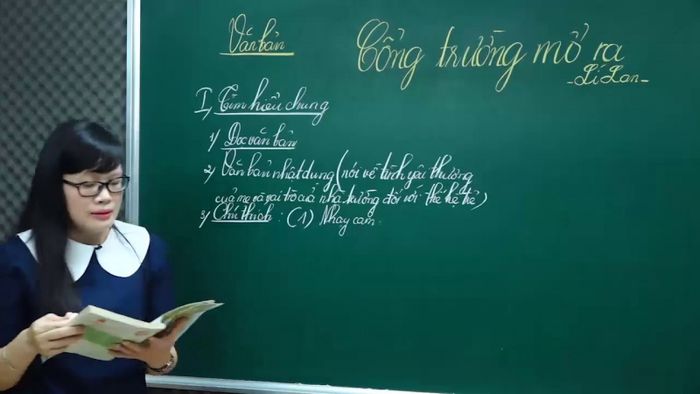 Văn bản
Cổng trường mở ra
- Lí Lan -
I, Tìm hiểu chung
1) Đọc văn bản
2) Văn bản nhật dụng (nói về tình yêu thương
của mẹ và vai trò của nhà trường đối với thế hệ trẻ)
3) Chú thích : (1) Nhạy cảm